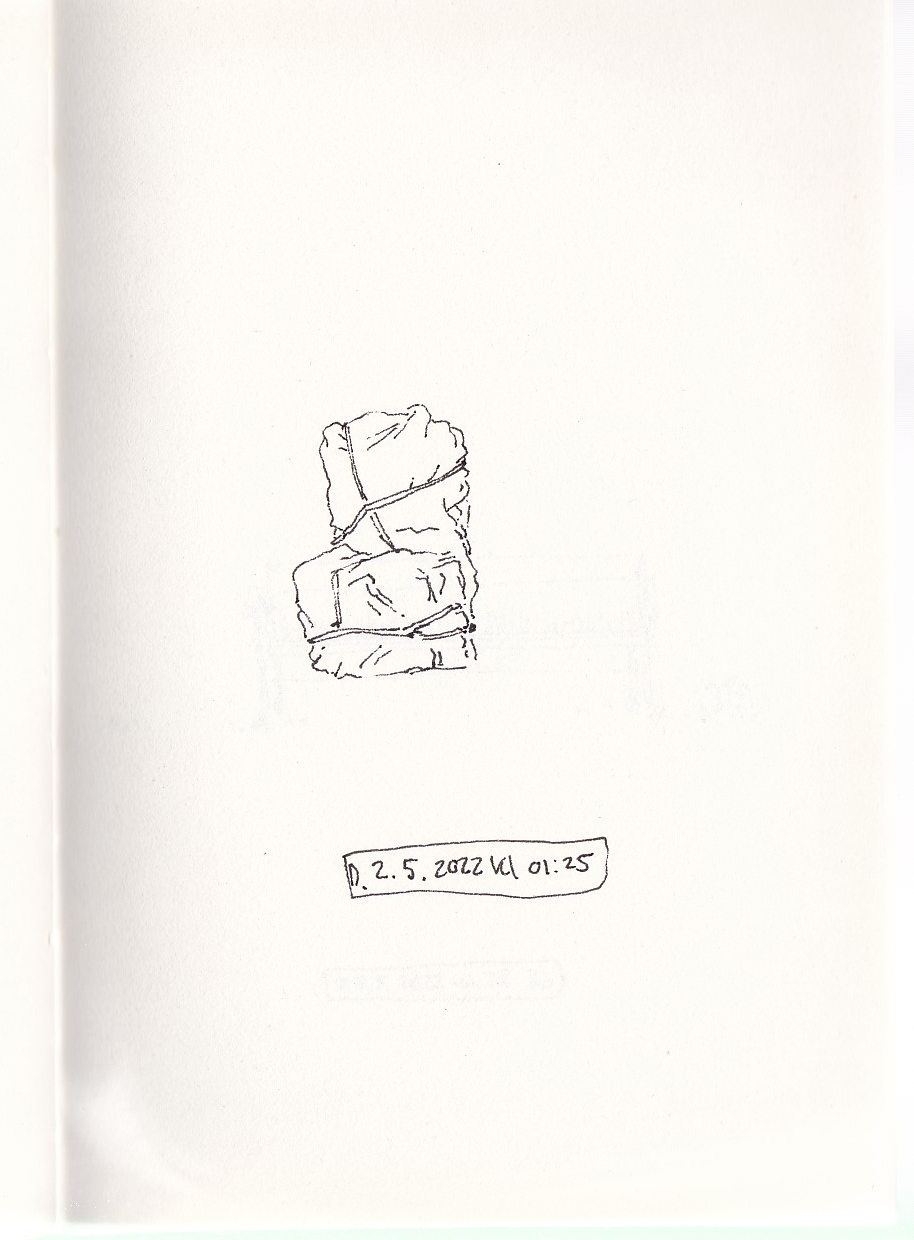 D. 2.5.2022 kl 01:25